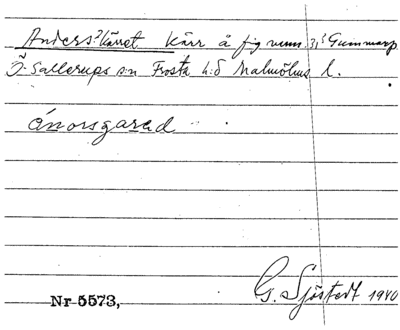 Anders?kärret Kärr å fig num. 3,3 Gummarp
Ö. Sallerups sn Frosta h:d Malmöhus l.
ánorsgarad
Nr 5573,
G. Sjöstedt 1940